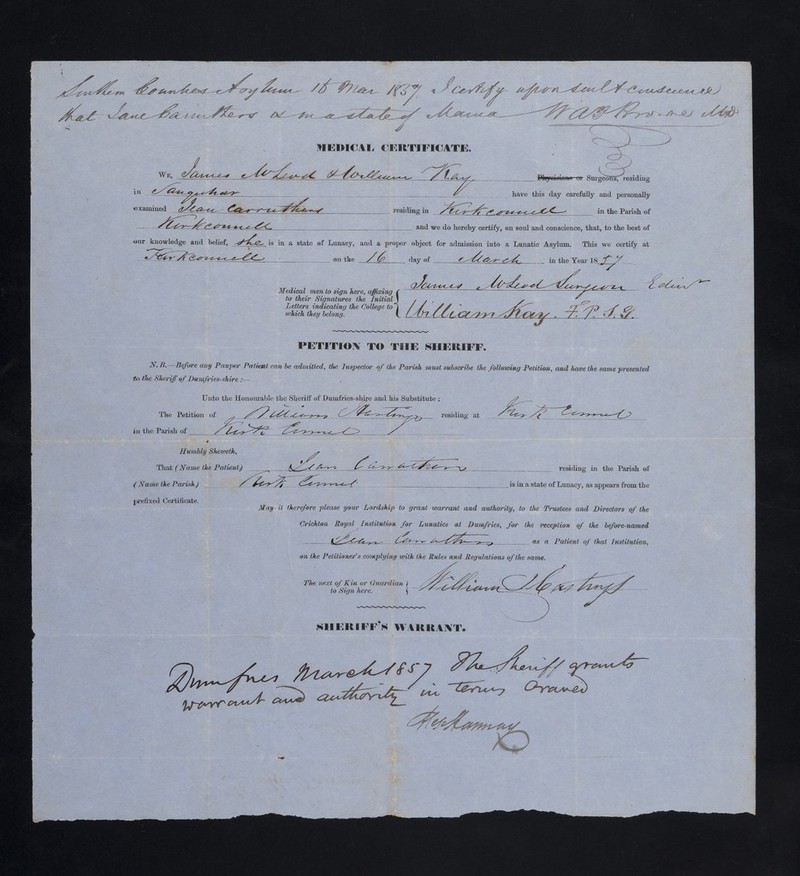 Southern Counties Asylum 18 Mar 1857. I certify upon soul & conscience
that Jane Carruthers is in a state of Mania W A F Browne MD
MEDICAL CERTIFICATE.
We, James McLeod & William Kay Physicians or Surgeons, residing
in Sanquhar have this day carefully and personally
examined Jean Carruthers residing in Kirkconnell in the Parish of
Kirkconnell and we do hereby certify, on soul and conscience, that, to the best of
our knowledge and belief, she is in a state of Lunacy, and a proper object for admission into a Lunatic Asylum. This we certify at
Kirkconnell on the 16 day of March in the Year 1857
Medical men to sign here, affixing
to their Signatures the Initial
Letters indicating the College to
which they belong.
James McLeod Surgeon Edinr
William Kay. F. P. S. G.
PETITION TO THE SHERIFF.
N. B.—Before any Pauper Patient can be admitted, the Inspector of the Parish must subscribe the following Petition, and have the same presented
to the Sheriff of Dumfries-shire:—
Unto the Honourable the Sheriff of Dumfries-shire and his Substitute;
The Petition of William Hastings residing at Kirk Connel
in the Parish of Kirk Connel
Humbly Sheweth,
That (Name the Patient) Jean Carruthers residing in the Parish of
(Name the Parish) Kirk Connel is in a state of Lunacy, as appears from the
prefixed Certificate.
May it therefore please your Lordship to grant warrant and authority, to the Trustees and Directors of the
Crichton Royal Institution for Lunatics at Dumfries, for the reception of the before-named
Jean Carruthers as a Patient of that Institution,
on the Petitioner's complying with the Rules and Regulations of the same.
The next of Kin or Guardian
to Sign here.
William Hastings
SHERIFF'S WARRANT.
Dumfries March 1857 The Sheriff grants
warrant and authority in terms craved
Hannay